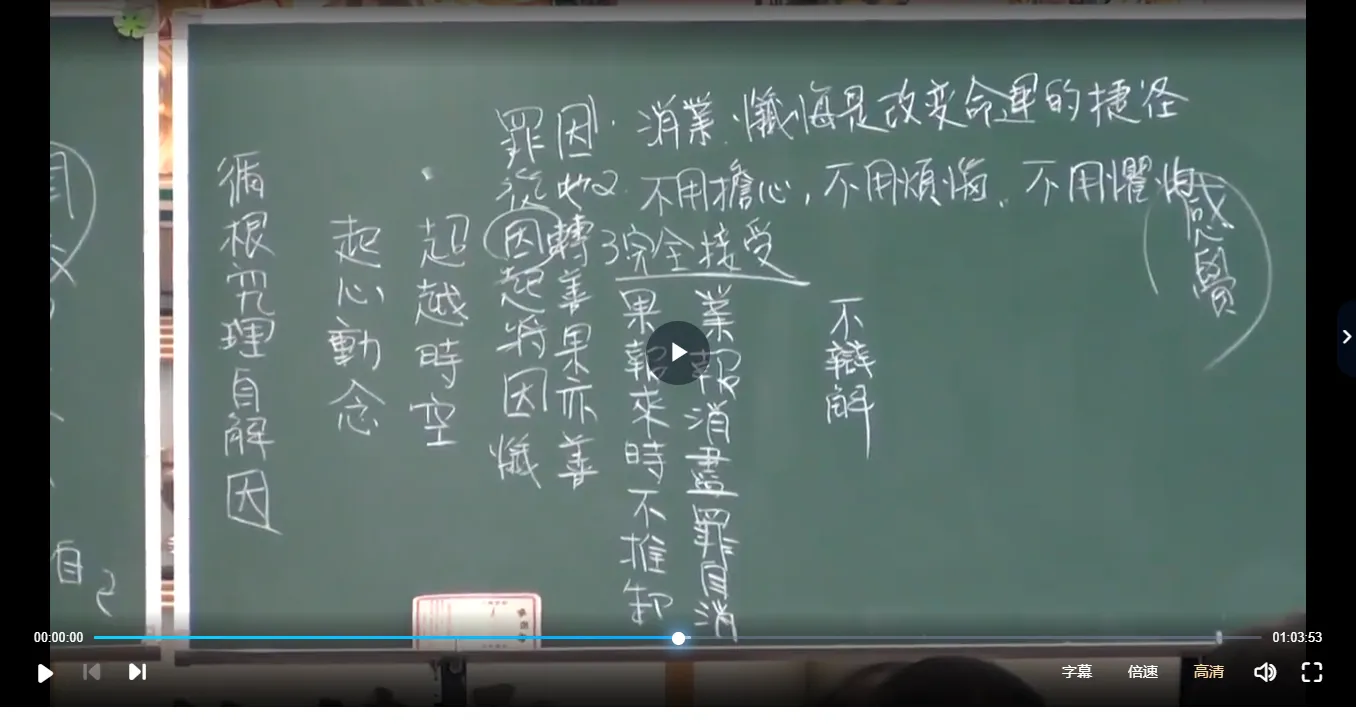 消業.懺悔是改变命運的捷径
2.不用擔心,不用煩惱.不用懼怕
3完全接受
感覺
不辯解
業報消盡罪自消
果報來時不推卸
因 轉善果亦善
罪從因起將因懺
超越時空
起心動念
循根究理自解因
自己
00:00:00
01:03:53
字幕
倍速
高清